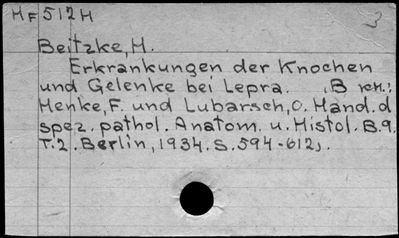 HF 512 H
3
Beitzke, H.
Erkrankungen der Knochen
und Gelenke bei Lepra. (B кн.:
Henke, F. und Lubarsch, O. Hand. d
spez. pathol. Anatom. u. Histol. B.9.
T.2. Berlin, 1934. S. 594-612).